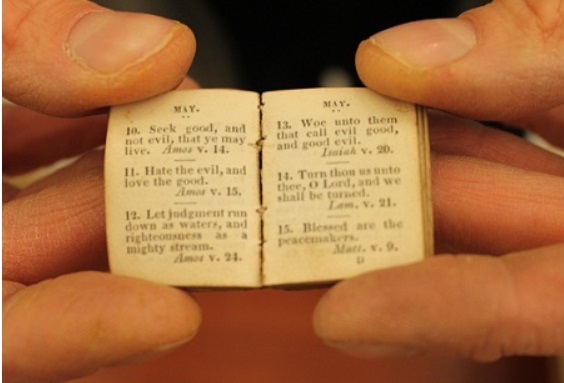 MAY.
10. Seek good, and
not evil, that ye may
live. Amos v. 14.
11. Hate the evil, and
love the good.
Amos v. 15.
12. Let judgment run
down as waters, and
righteousness as a
mighty stream.
Amos v. 24.
MAY.
13. Woe unto them
that call evil good,
and good evil.
Isaiah v. 20.
14. Turn thou us unto
thee, O Lord, and we
shall be turned.
Lam. v. 21.
15. Blessed are the
peacemakers.
Matt. v. 9.
D